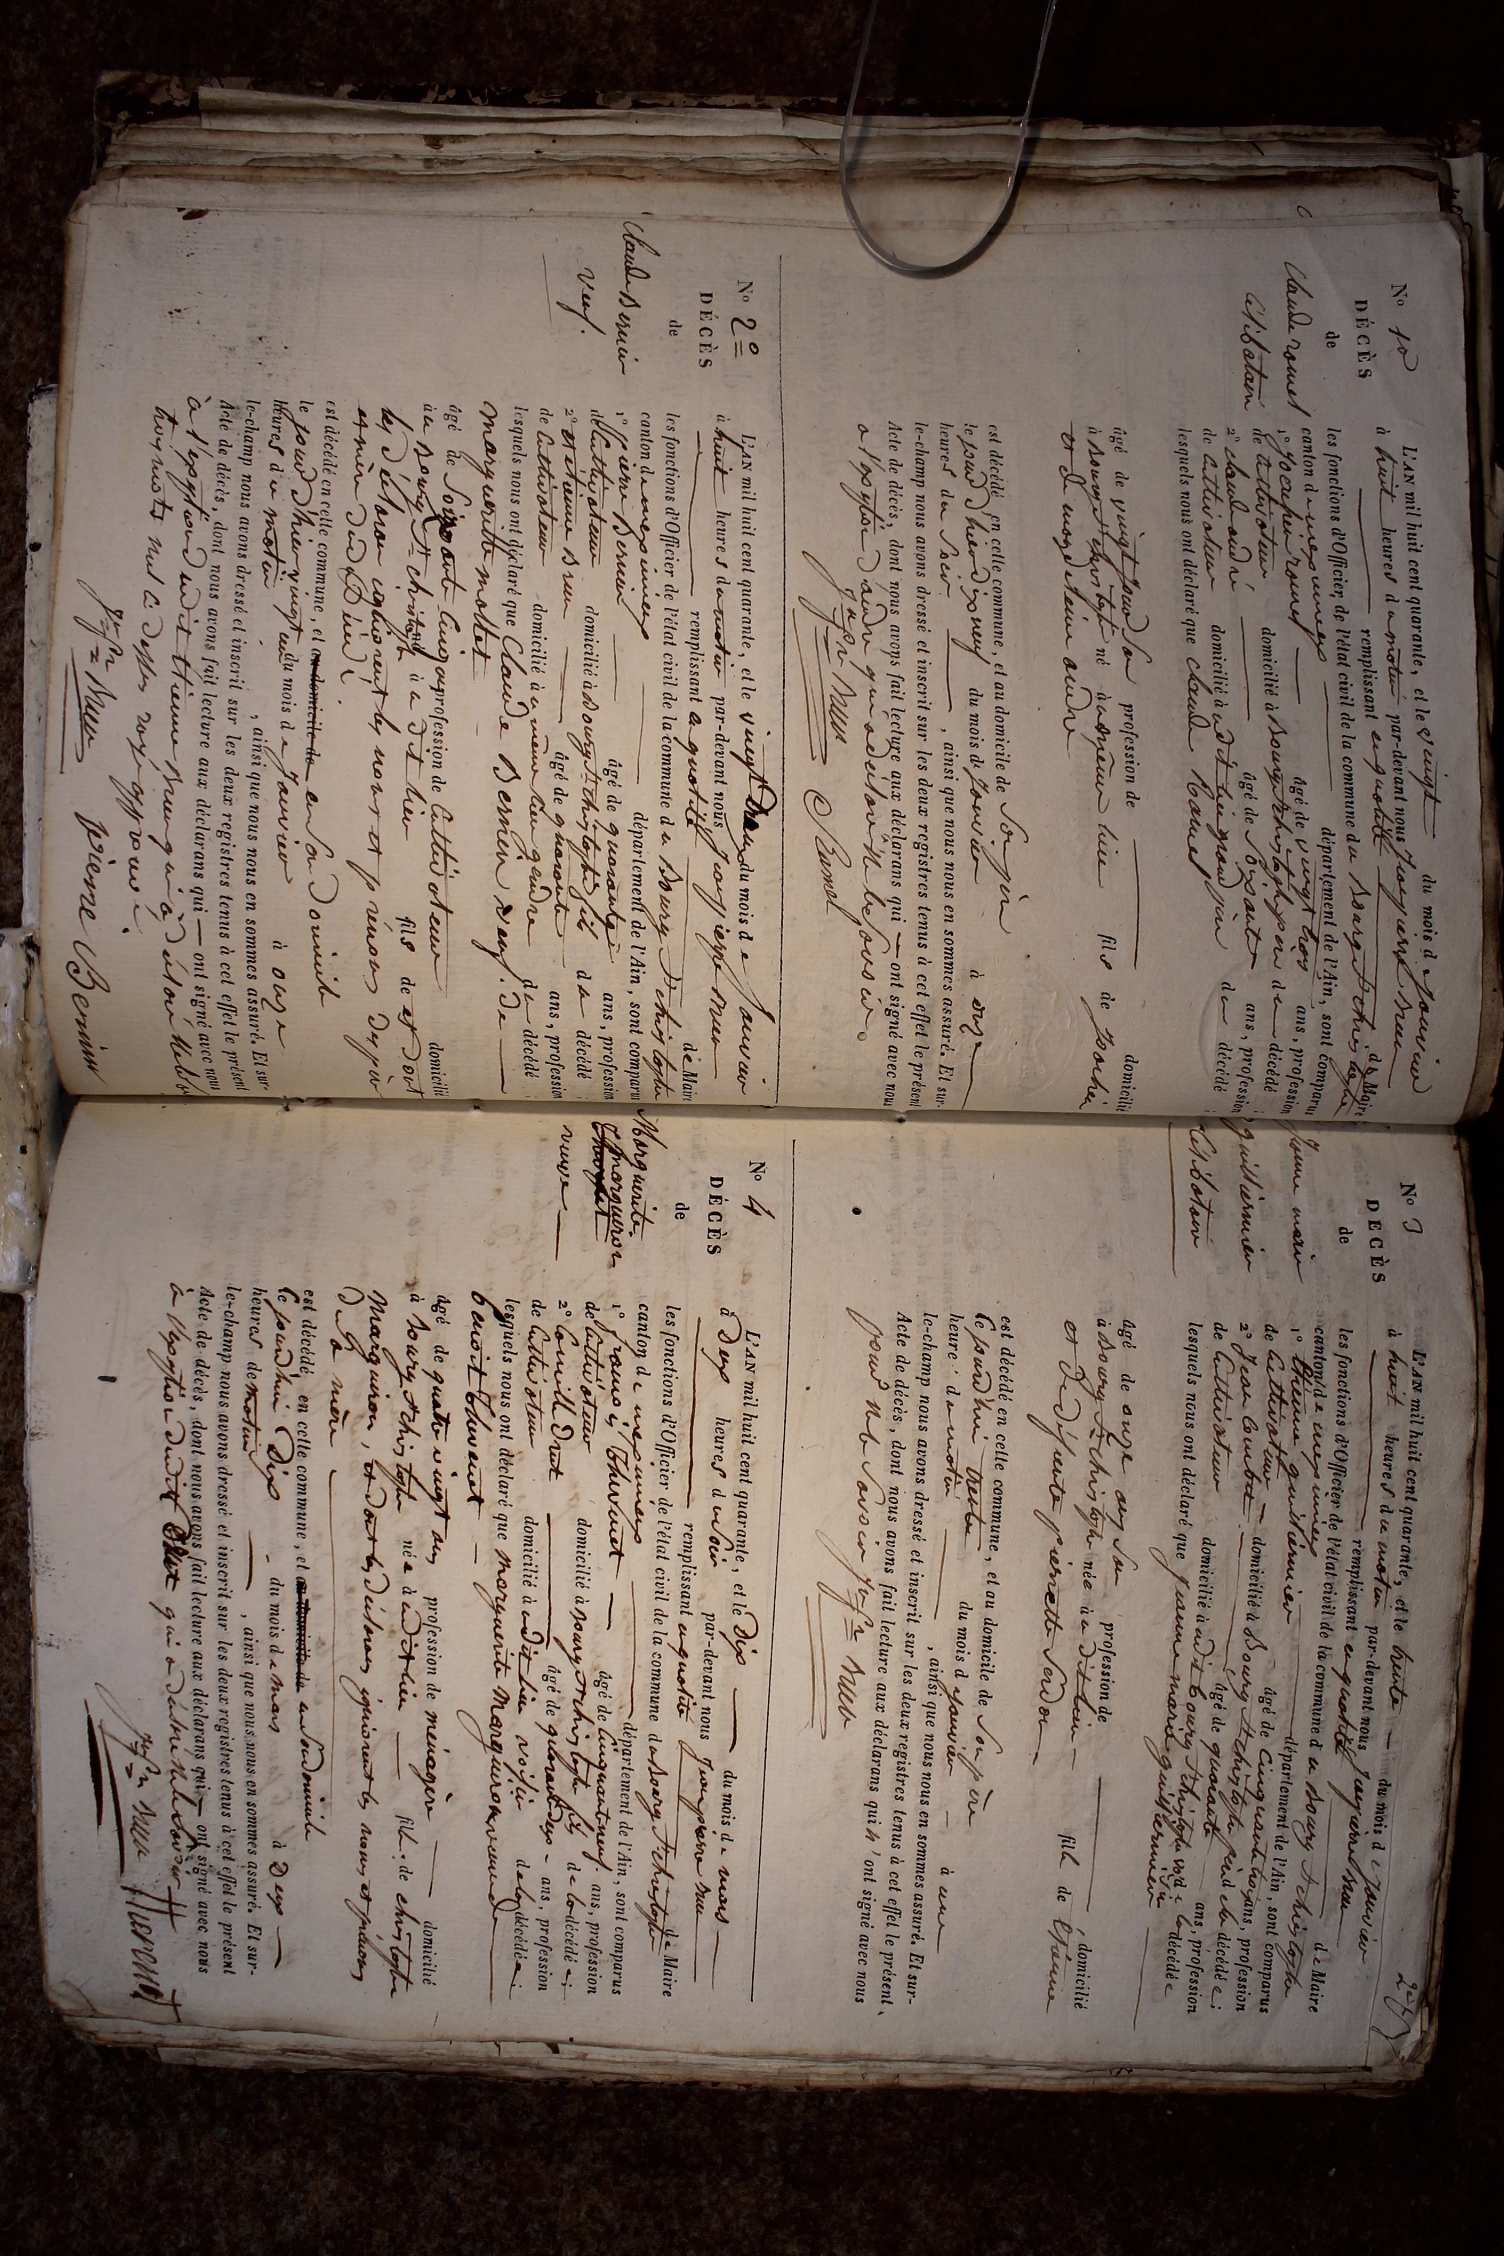 No 10
DÉCÈS
de
Claude romet
Célibataire
L'AN mil huit cent quarante, et le vingt du mois de Janvier
à huit heures du matin par-devant nous
remplissant en qualité de Maire
les fonctions d'Officier de l'état civil de la commune de Bourg St Christophe
canton de meximieux département de l'Ain, sont comparus
1° romet âgé de vingt trois ans, profession
de cultivateur domicilié à Bourg St Christophe du décédé;
2° claude andré âgé de soixante ans, profession
de cultivateur domicilié à du décédé
lesquels nous ont déclaré que Claude Romet
âgé de vingt profession de domicilié
à Bourg St Christophe né à fils de
et de andré
est décédé en cette commune, et au domicile de son père
le jour d'hier dix neuf du mois de Janvier à onze
heures du soir, ainsi que nous nous en sommes assuré. Et sur-
le-champ nous avons dressé et inscrit sur les deux registres tenus à cet effet le présent
Acte de décès, dont nous avons fait lecture aux déclarans qui ont signé avec nous
à l'exption d'andré qui a déclaré ne le savoir.
Romet
No 2
DÉCÈS
de
Claude Bernin
veuf.
L'AN mil huit cent quarante, et le vingt deux du mois de Janvier
à huit heures du matin par-devant nous
remplissant en qualité de Maire
les fonctions d'Officier de l'état civil de la commune de Bourg St Christophe
canton de meximieux département de l'Ain, sont comparus
1° Pierre Bernin âgé de quarante ans, profession
de Cultivateur domicilié à Bourg St Christophe fils du décédé
2° étienne Brun âgé de quarante ans, profession
de Cultivateur domicilié à même lieu gendre du décédé
lesquels nous ont déclaré que Claude Bernin veuf. de
Marguerite mollet
âgé de soixante cinq ans profession de Cultivateur domicilié
à Bourg St Christophe né à dit lieu fils de et dont
les déclarans ignorent les noms et prénoms du père
et mère du dit
est décédé en cette commune, et en son domicile
le jour d'hier vingt un du mois de Janvier à onze
heures du matin, ainsi que nous nous en sommes assuré. Et sur-
le-champ nous avons dressé et inscrit sur les deux registres tenus à cet effet le présent
Acte de décès, dont nous avons fait lecture aux déclarans qui ont signé avec nous
à l'exption du dit étienne Brun qui a déclaré ne le
trois mots nul ci dessus rayé approuvé.
pierre Bernin
2
No 3
DÉCÈS
de
Jeanne marie
guillermier
Célibataire
L'AN mil huit cent quarante, et le trente du mois de Janvier
à huit heures du matin par-devant nous
remplissant en qualité de Maire
les fonctions d'Officier de l'état civil de la commune de Bourg St Christophe
canton de meximieux département de l'Ain, sont comparus
1° étienne guillermier âgé de cinquante trois ans, profession
de Cultivateur domicilié à Bourg St Christophe père de la décédée;
2° Jean âgé de quarante ans, profession
de Cultivateur domicilié à dit bourg St Christophe de la décédée
lesquels nous ont déclaré que Jeanne marie guillermier
âgé de onze ans profession de domicilié
à Bourg St Christophe née à dit lieu fille de étienne
et de défunte pierrette
est décédé en cette commune, et au domicile de son père
le jourd'hui trente du mois de Janvier à une
heure du matin, ainsi que nous nous en sommes assuré. Et sur-
le-champ nous avons dressé et inscrit sur les deux registres tenus à cet effet le présent,
Acte de décès, dont nous avons fait lecture aux déclarans qui n'ont signé avec nous
pour ne le savoir
No 4
DÉCÈS
de
Marguerite
marguiron
veuve
L'AN mil huit cent quarante, et le dix du mois de mars
à deux heures du soir par-devant nous
remplissant en qualité de Maire
les fonctions d'Officier de l'état civil de la commune de Bourg St Christophe
canton de meximieux département de l'Ain, sont comparus
1° françois Thevenet âgé de cinquante neuf ans, profession
de Cultivateur domicilié à Bourg St Christophe fils de la décédée;
2° Camille Drut âgé de quarante deux ans, profession
de Cultivateur domicilié à dit lieu voisin de la décédée;
lesquels nous ont déclaré que marguerite Marguiron veuve de
benoit Thevenet
âgé de quatre vingt ans profession de ménagère domicilié
à Bourg St Christophe née à dit lieu fille de christophe
Marguiron, et dont les déclarans ignorent les noms et prénoms
de sa mère
est décédé en cette commune, et en son domicile
le jourd'hui dix du mois de mars à deux
heures de matin, ainsi que nous nous en sommes assuré. Et sur-
le-champ nous avons dressé et inscrit sur les deux registres tenus à cet effet le présent
Acte de décès, dont nous avons fait lecture aux déclarans qui ont signé avec nous
à l'exption dudit Drut qui a déclaré ne le savoir
Thevenet